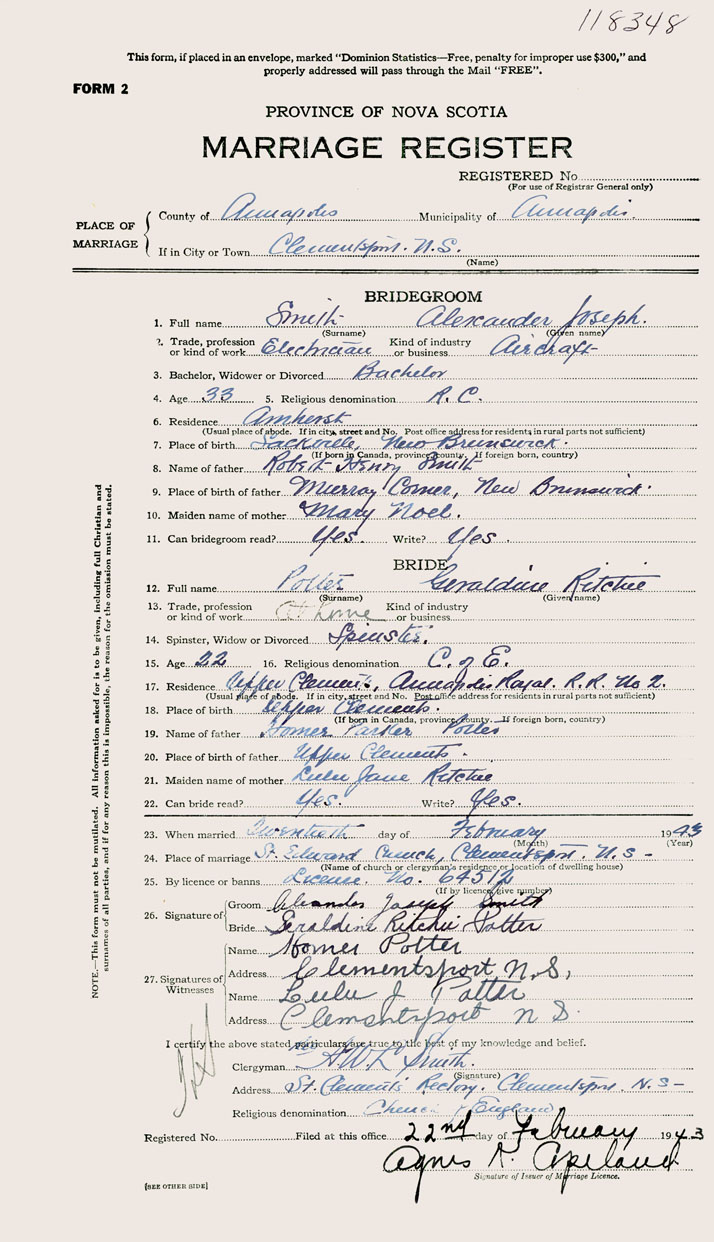 118348
This form, if placed in an envelope, marked "Dominion Statistics—Free, penalty for improper use $300," and
properly addressed will pass through the Mail "FREE".
FORM 2
PROVINCE OF NOVA SCOTIA
MARRIAGE REGISTER
REGISTERED No
(For use of Registrar General only)
PLACE OF MARRIAGE
County of Annapolis Municipality of Annapolis.
If in City or Town Clementsport. N.S.
(Name)
BRIDEGROOM
1. Full name Smith Alexander Joseph.
(Surname) (Given name)
2. Trade, profession or kind of work Electrician Kind of industry or business Aircraft
3. Bachelor, Widower or Divorced Bachelor
4. Age 33 5. Religious denomination R.C.
6. Residence Amherst
(Usual place of abode. If in city, street and No. Post office address for residents in rural parts not sufficient)
7. Place of birth Sackville, New Brunswick.
(If born in Canada, province, county. If foreign born, country)
8. Name of father Robert Henry Smith
9. Place of birth of father Murray Corner, New Brunswick.
10. Maiden name of mother Mary Noel.
11. Can bridegroom read? Yes. Write? Yes.
BRIDE
12. Full name Potter Geraldine Ritchie
(Surname) (Given name)
13. Trade, profession or kind of work At home Kind of industry or business
14. Spinster, Widow or Divorced Spinster.
15. Age 22 16. Religious denomination C. of E.
17. Residence Upper Clements, Annapolis Royal. R.R. No 2.
(Usual place of abode. If in city, street and No. Post office address for residents in rural parts not sufficient)
18. Place of birth Upper Clements.
(If born in Canada, province, county. If foreign born, country)
19. Name of father Homer Parker Potter
20. Place of birth of father Upper Clements.
21. Maiden name of mother Lulu Jane Ritchie
22. Can bride read? Yes. Write? Yes.
23. When married Twentieth day of February 1943
(Month) (Year)
24. Place of marriage St. Edward Church, Clementsport. N.S-
(Name of church or clergyman's residence or location of dwelling house)
25. By licence or banns License. No.
(If by licence, give number)
26. Signature of
Groom Alexander Joseph Smith
Bride Geraldine Ritchie Potter
27. Signatures of Witnesses
Name Homer Potter
Address Clementsport N.S,
Name Lulu J Potter
Address Clementsport N S.
I certify the above stated particulars are true to the best of my knowledge and belief.
Clergyman Smith.
(Signature)
Address St. Clements Rectory. Clementsport. N.S-
Religious denomination Church of England
Registered No. Filed at this office 22nd day of February 1943
Agnes
Signature of Issuer of Marriage Licence.
[SEE OTHER SIDE]
NOTE.—This form must not be mutilated. All information asked for is to be given, including full Christian and
surnames of all parties, and if for any reason this is impossible, the reason for the omission must be stated.